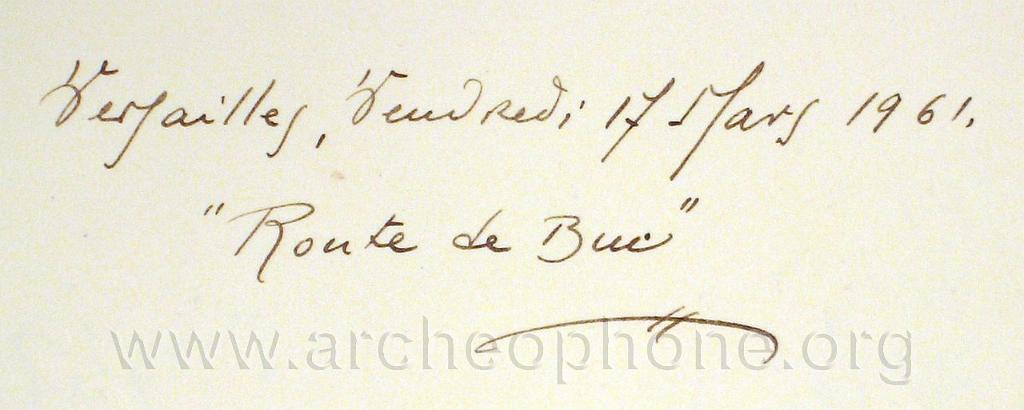 Versailles, Vendredi 17 Mars 1961.
"Route de Buc"
www.archeophone.org